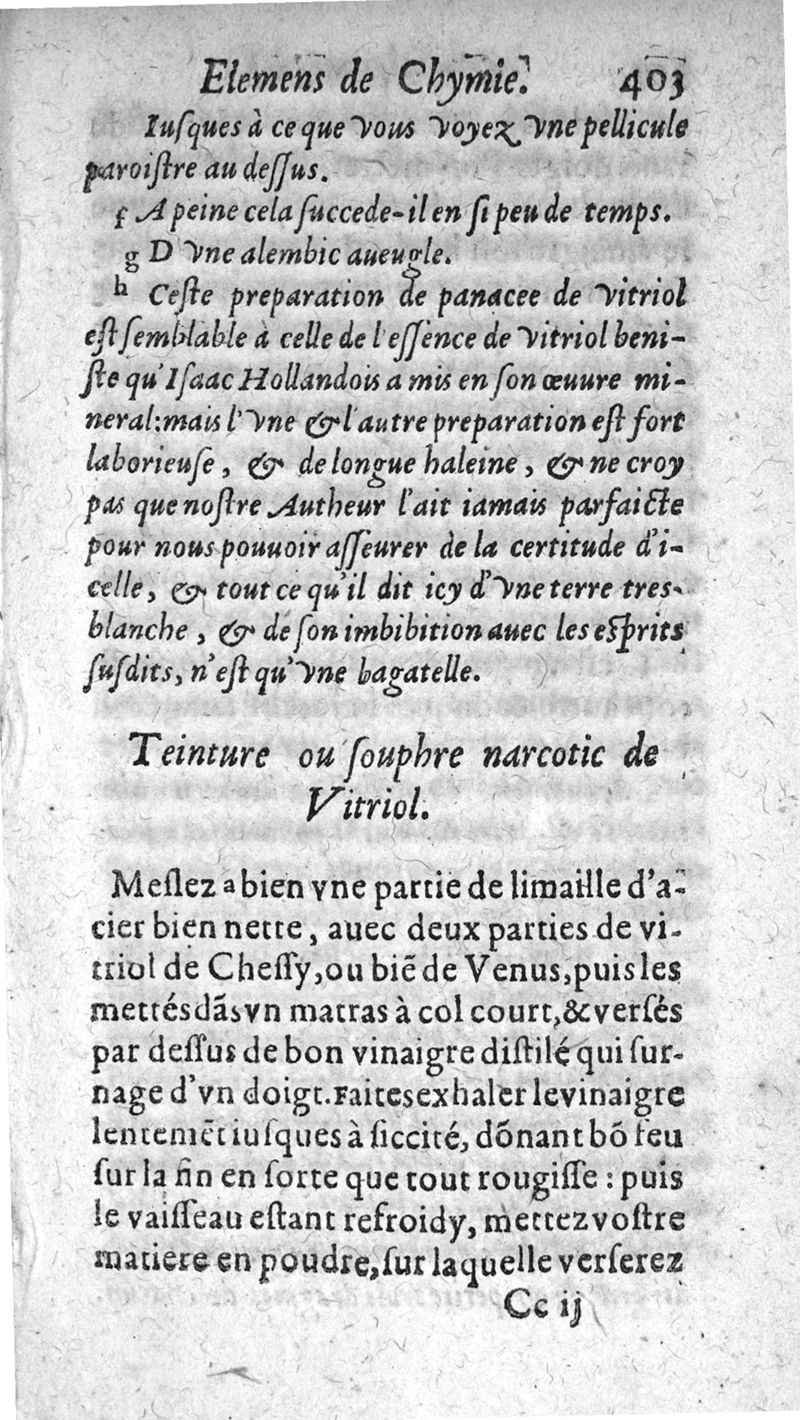 Elemens de Chymie. 403
Iuſques à ce que vous voyez vne pellicule
paroiſtre au deſſus.
f A peine cela ſuccede-il en ſi peu de temps.
g D'vne alembic aueugle.
h Ceſte preparation de panacee de vitriol
eſt ſemblable à celle de l'eſſence de vitriol beni-
ſte qu'Iſaac Hollandois a mis en ſon œuure mi-
neral: mais l'vne & l'autre preparation eſt fort
laborieuſe, & de longue haleine, & ne croy
pas que noſtre Autheur l'ait iamais parfaicte
pour nous pouuoir aſſeurer de la certitude d'i-
celle, & tout ce qu'il dit icy d'vne terre tres-
blanche, & de ſon imbibition auec les eſprits
ſuſdits, n'eſt qu'vne bagatelle.
Teinture ou ſouphre narcotic de
Vitriol.
Meſlez a bien vne partie de limaille d'a-
cier bien nette, auec deux parties de vi-
triol de Cheſſy, ou biẽ de Venus, puis les
mettés dãs vn matras à col court, & verſés
par deſſus de bon vinaigre diſtilé qui ſur-
nage d'vn doigt. Faites exhaler le vinaigre
lentemẽt iuſques à ſiccité, dõnant bõ feu
ſur la fin en ſorte que tout rougiſſe : puis
le vaiſſeau eſtant refroidy, mettez voſtre
matiere en poudre, ſur laquelle verſerez
Cc ij